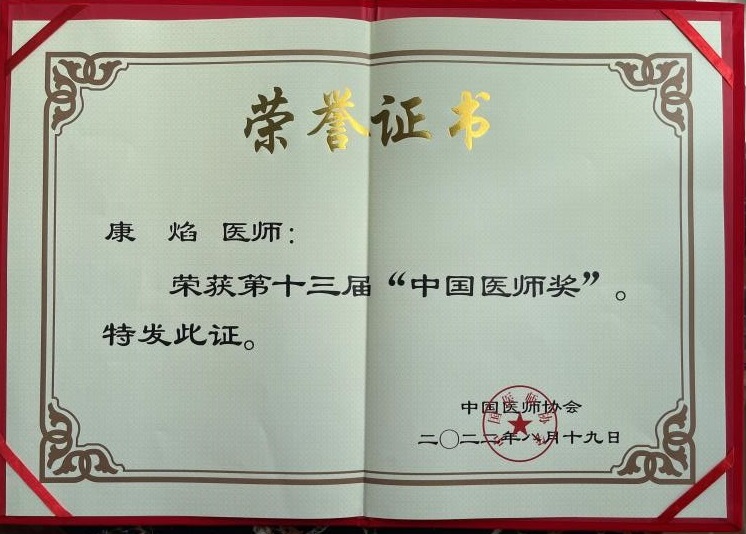 荣誉证书
康 焰 医师：
荣获第十三届“中国医师奖”。
特发此证。
中国医师协会
二〇二二年八月十九日
中国医师协会